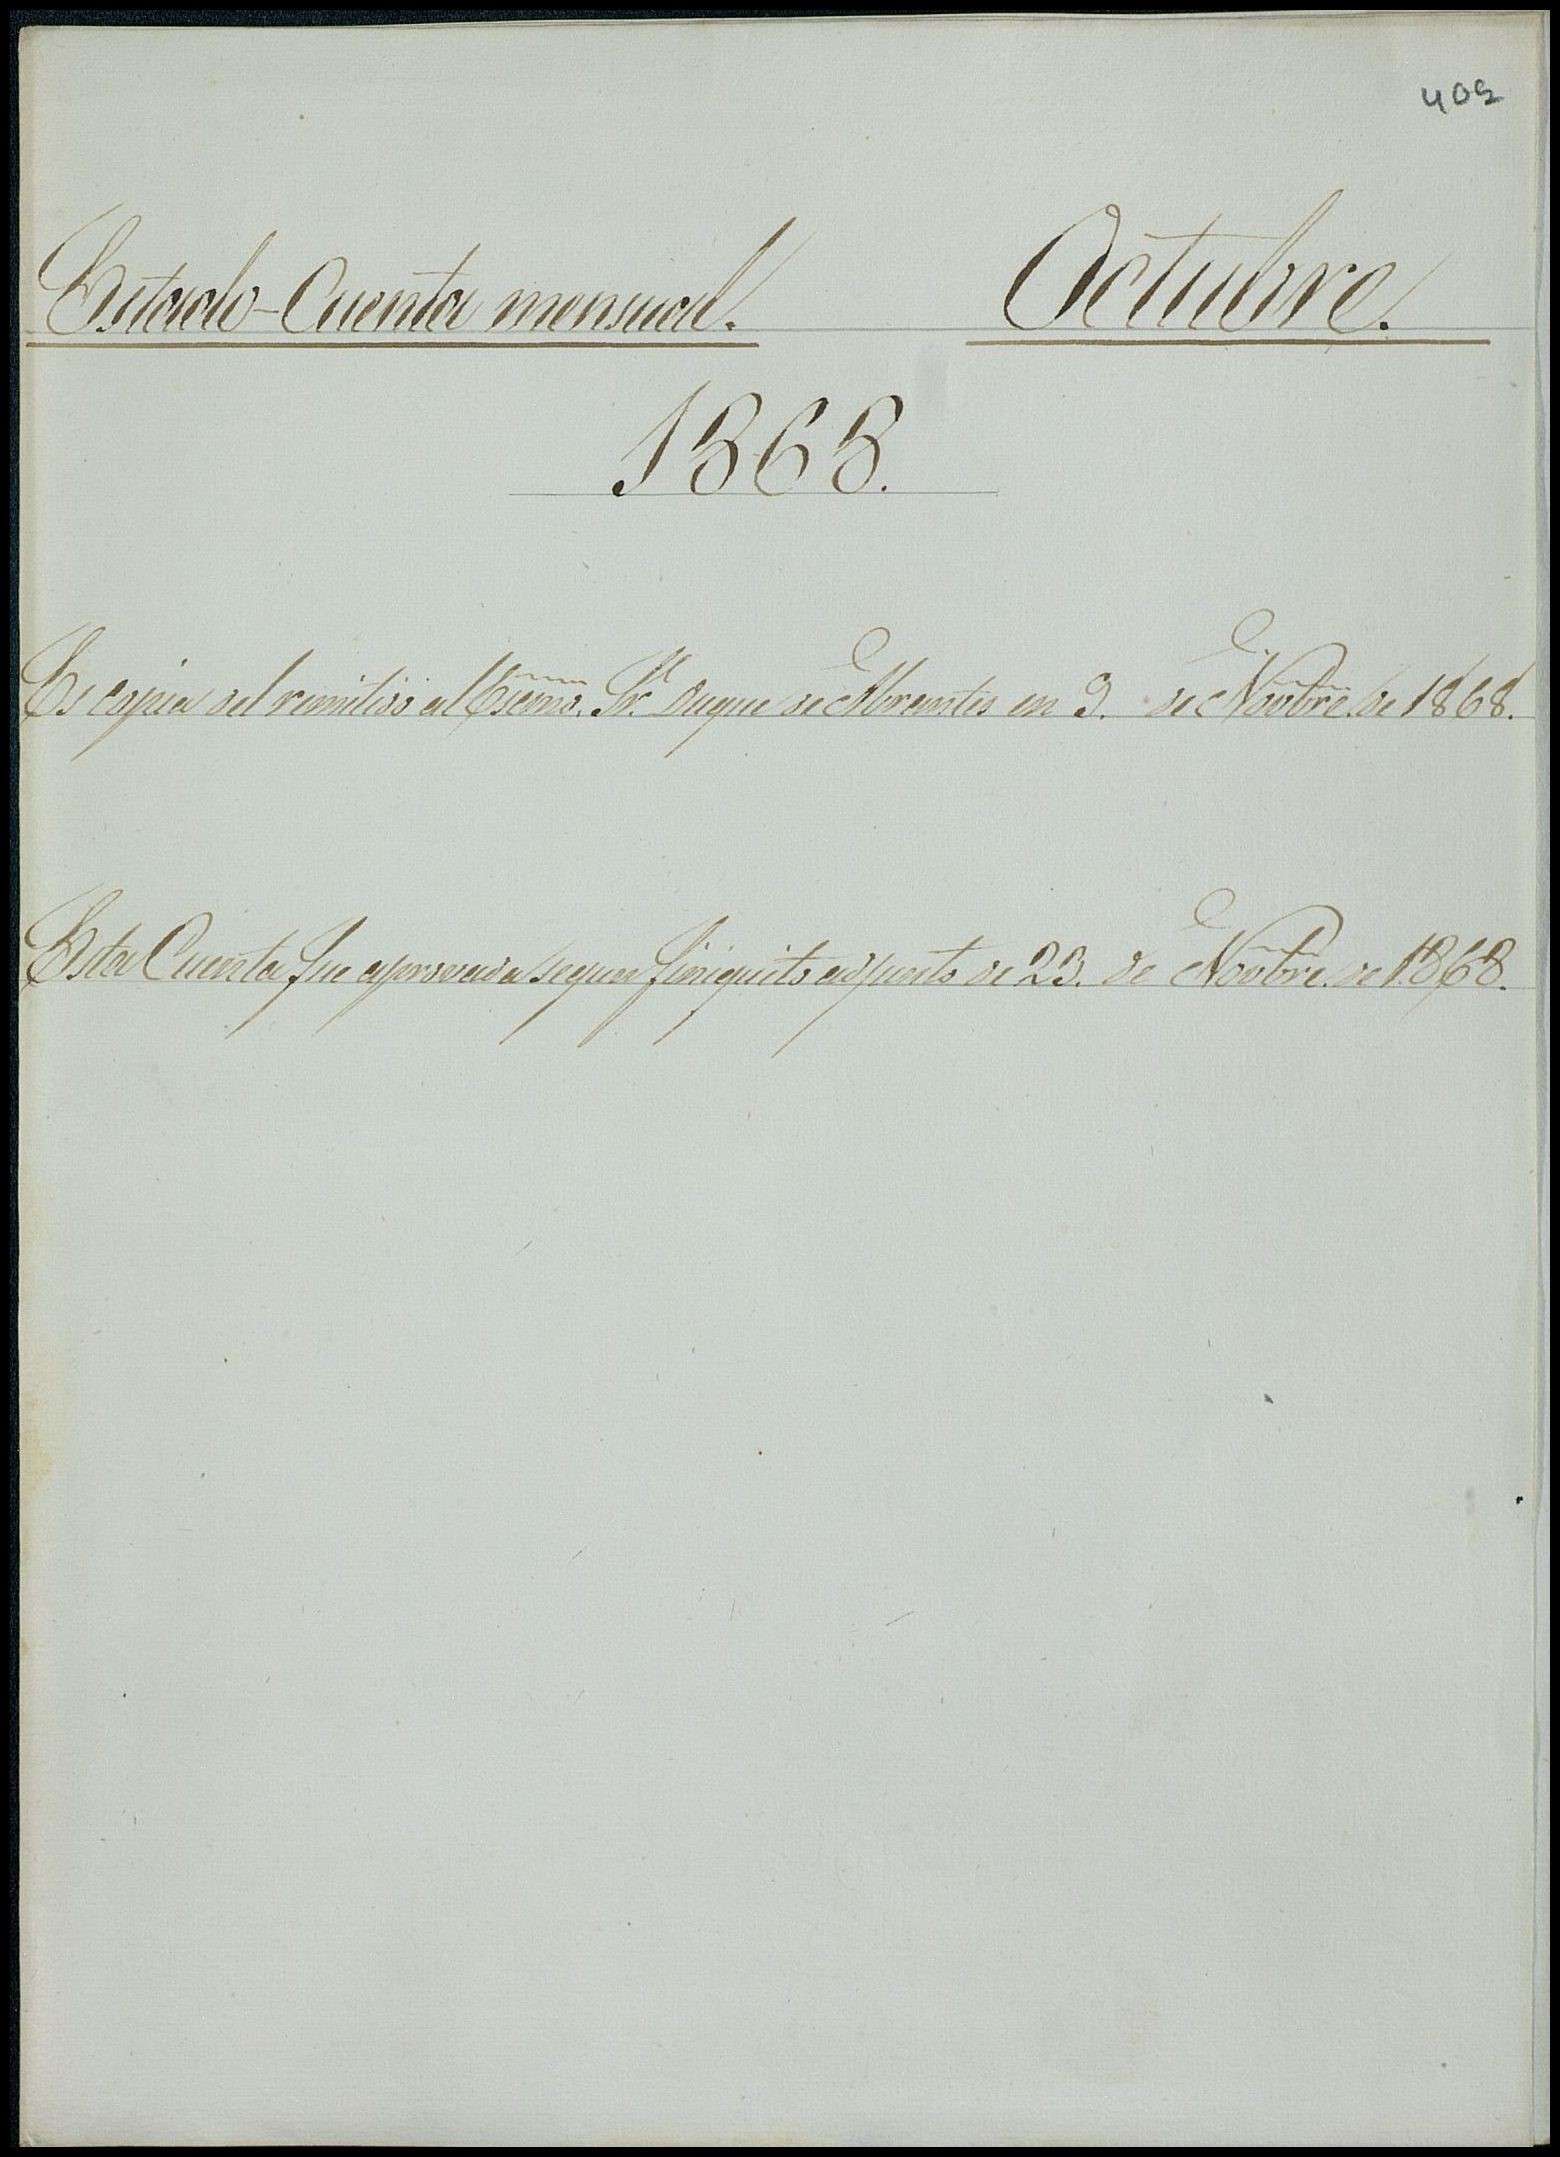 409
Estado-Cuenta mensual. Octubre.
1868.
Es copia del remitido al Escmo. Sr. Duque de Abrantes en 9. de Novbre. de 1868.
Esta Cuenta fue aprovada segun finiquito adjunto de 23. de Novbre. de 1868.